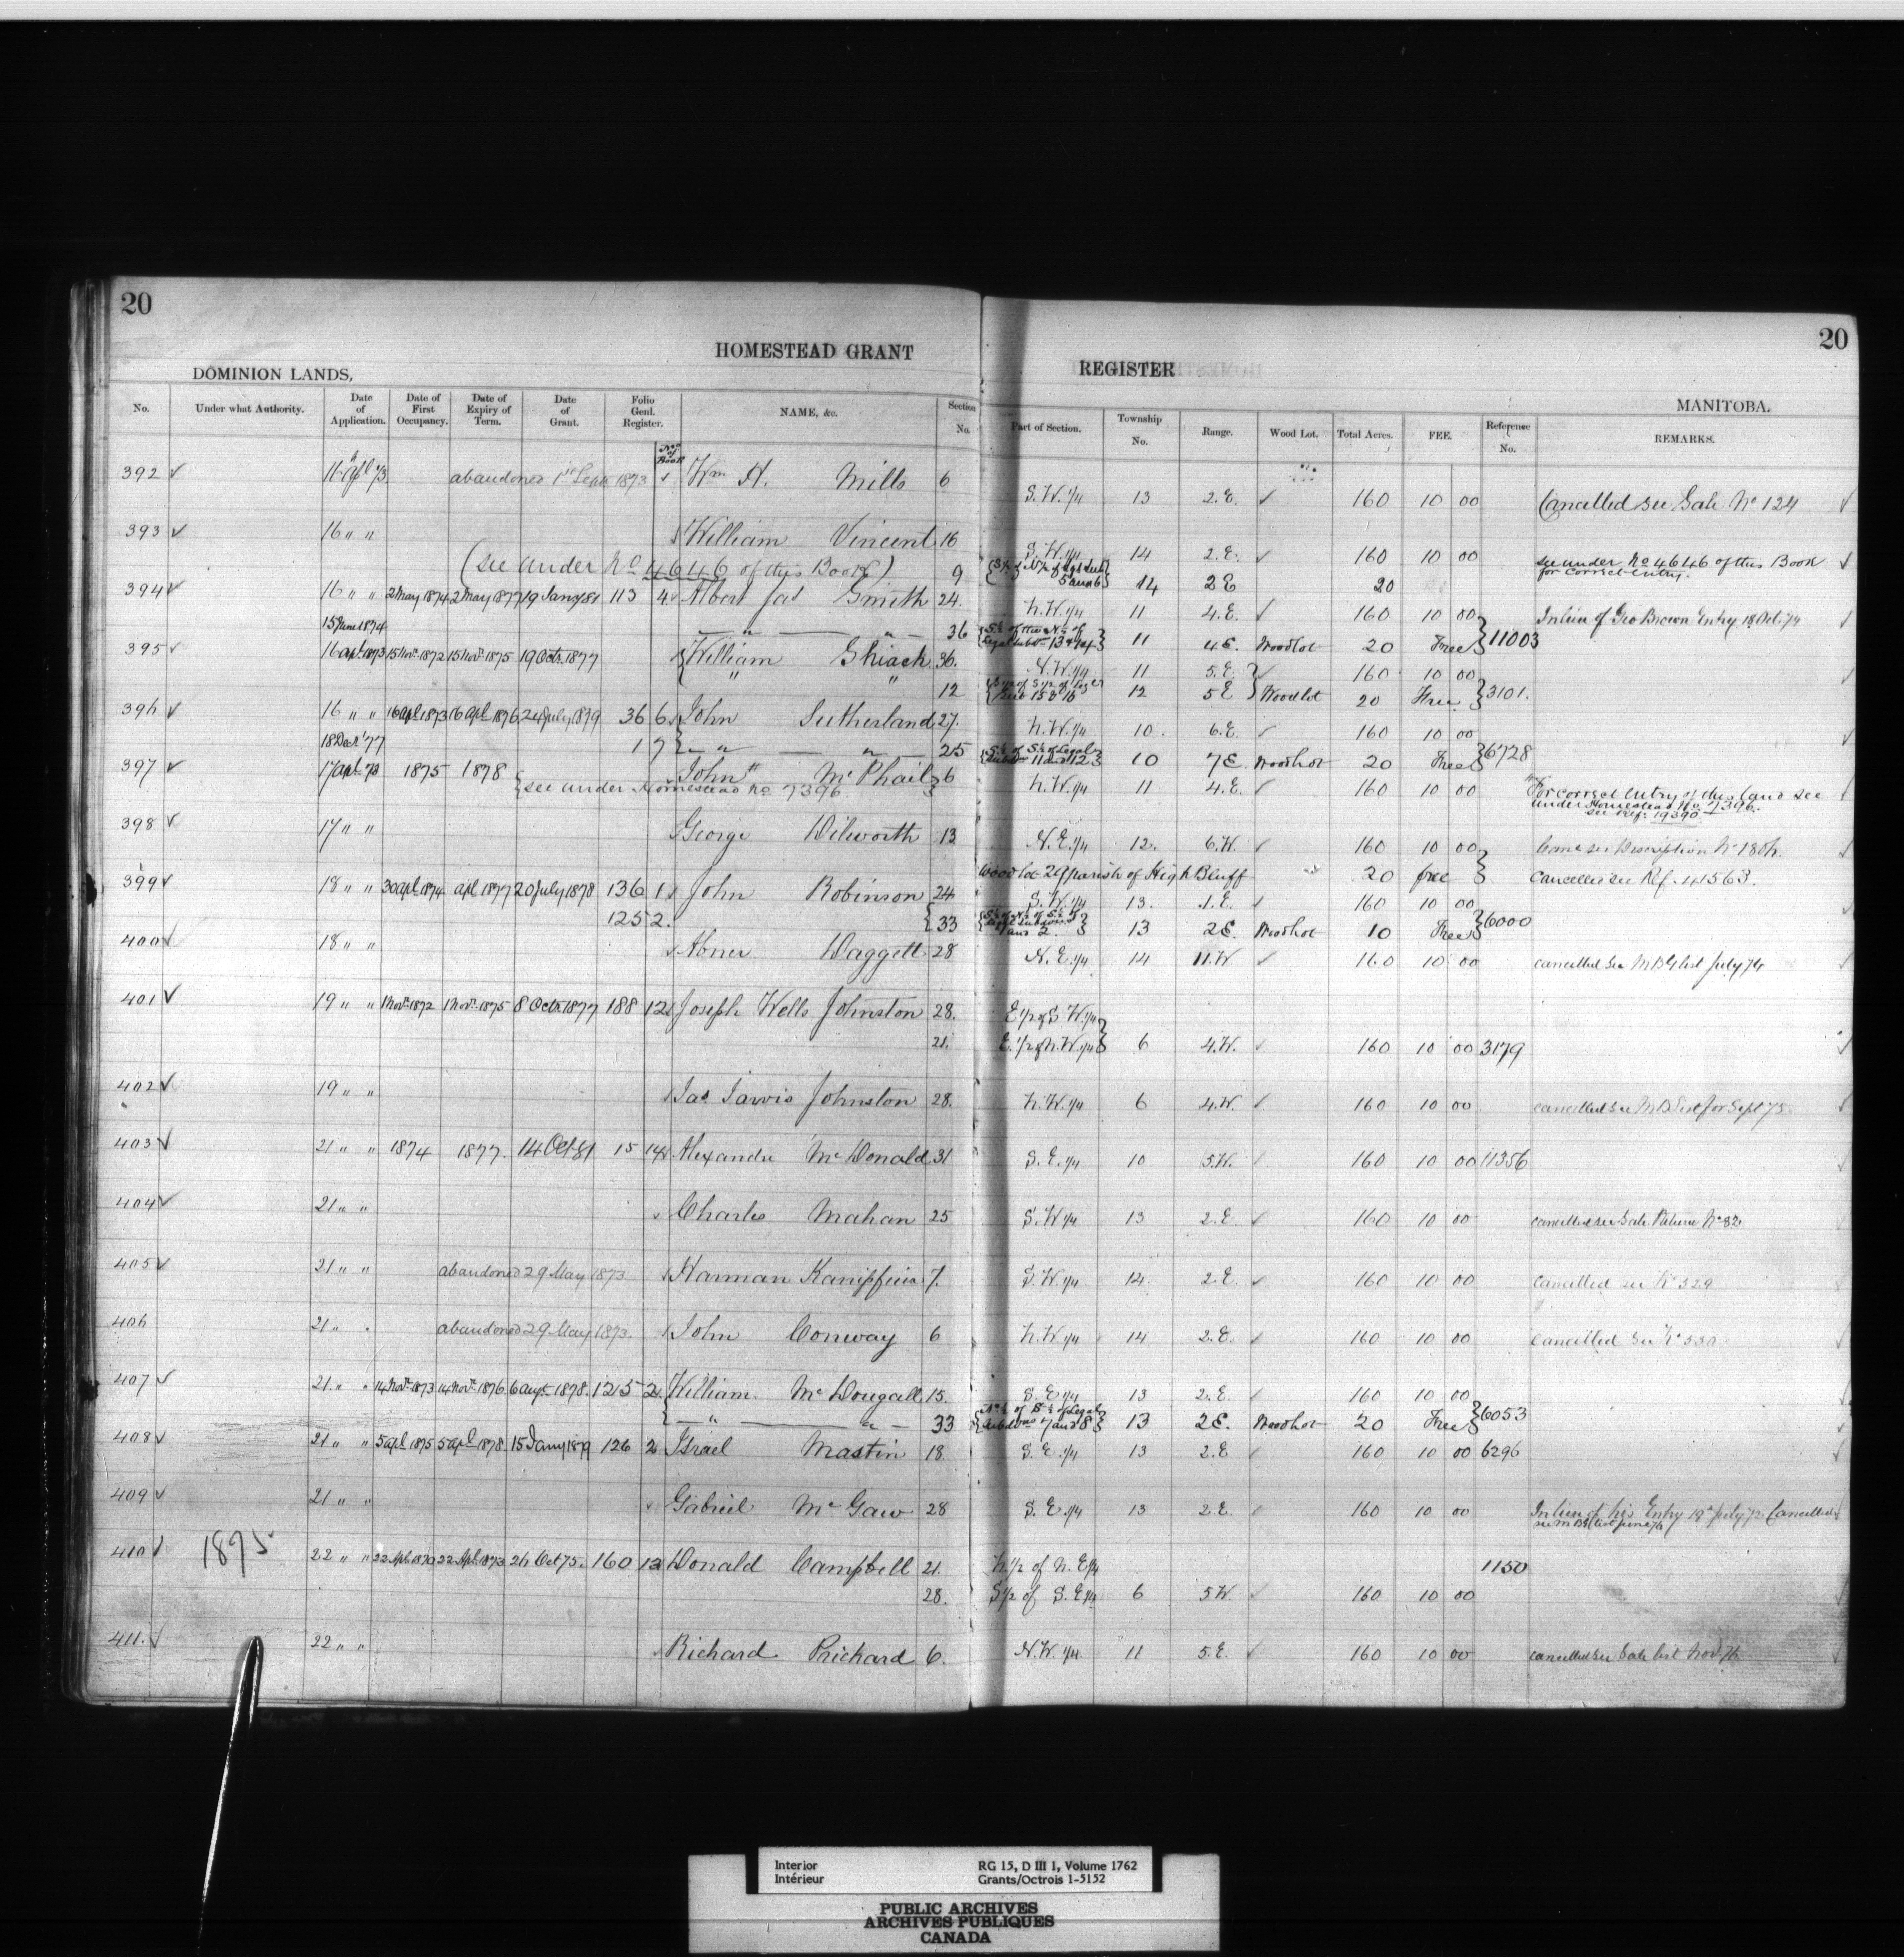 20
20
HOMESTEAD GRANT
REGISTER
DOMINION LANDS,
MANITOBA.
No. Under what Authority. Date of Application. Date of First Occupancy. Date of Expiry of Term. Date of Grant. Folio Genl. Register. NAME, &c. Section No. Part of Section. Township No. Range. Wood Lot. Total Acres. FEE. Reference No. REMARKS.
No of Book
392 ✓ 16 Apl 73 abandoned 1st Sept 1873 ✓ Wm H. Mills 6 S.W.1/4 13 2.E. ✓ 160 10 00 Cancelled see Sale No 124 ✓
393 ✓ 16 " " William Vincent 16 S.W.1/4 14 2.E. ✓ 160 10 00 see under No 4646 of this Book for correct entry. ✓
(see under No 4646 of this Book) 9 14 2E 20
394 ✓ 16 " " 2 May 1874 2 May 1877 19 Jany 81 113 4 Albert Jas Smith 24. N.W.1/4 11 4.E. ✓ 160 10 00 In lieu of Geo Brown Entry 18 Oct. 74 ✓
15 June 1874 " " 36 S½ of the N½ of Legal subdn 13 & 14 11 4E. Woodlot 20 Free 11003
395 ✓ 16 apl. 1873 15 Nov. 1872 15 Nov. 1875 19 Octr. 1877 William Shiach 36. N.W.1/4 11 5.E. 160 10 00 ✓
" " 12 12 5E Woodlot 20 Free 3101.
396 ✓ 16 " " 16 apl 1873 16 apl 1876 24 July 1879 36 6 John Sutherland 27. N.W.1/4 10. 6.E. ✓ 160 10 00 ✓
18 Dec' 77 1 7 " " 25 S½ of S½ of Legal subdn 11 and 12 10 7E. Woodlot 20 Free 6728
397 ✓ 17 apl. 73 1875 1878 John McPhail 6 N.W.1/4 11 4.E. ✓ 160 10 00 For correct entry of this land see under Homestead No 7396. see Ref. 19390 ✓
see under Homestead No 7396.
398 ✓ 17 " " George Dilworth 13 N.E.1/4 12. 6.W. ✓ 160 10 00 ✓
Woodlot 29 parish of High Bluff 20 free cancelled see Ref. 41563.
399 ✓ 18 " " 30 apl 1874 apl 1877 20 July 1878 136 1 John Robinson 24 S.W.1/4 13. 1.E. ✓ 160 10 00
125 2. 33 13 2E. Woodlot 10 Free 6000
400 ✓ 18 " " Abner Daggett 28 N.E.1/4 14 11.W ✓ 160 10 00 cancelled see M.B.G. list July 74 ✓
401 ✓ 19 " " 1 Nov. 1872 1 Nov. 1875 8 Octr. 1877 188 12 Joseph Wells Johnston 28. E1/2 of S.W.1/4
21. E.1/2 of N.W.1/4 6 4.W. ✓ 160 10 00 3179 ✓
402 ✓ 19 " " Jas. Jarvis Johnston 28. N.W.1/4 6 4.W. ✓ 160 10 00 ✓
403 ✓ 21 " " 1874 1877. 14 Oct 81 15 14 Alexander McDonald 31 S.E.1/4 10 5.W. 160 10 00 11356 ✓
404 ✓ 21 " " Charles Mahan 25 S.W.1/4 13 2.E. ✓ 160 10 00 cancelled see Sale Return No 82
405 ✓ 21 " " abandoned 29 May 1873. Harman 7. S.W.1/4 14 2.E. ✓ 160 10 00 cancelled see No 529
406 21 " " abandoned 29 May 1873. John Conway 6 N.W.1/4 14 2.E. ✓ 160 10 00 Cancelled see No 530 ✓
407 ✓ 21. " " 14 Nov. 1873 14 Nov. 1876. 6 augt. 1878. 125 2 William McDougall 15. S.E.1/4 13 2.E. ✓ 160 10 00
" " 33 N½ of S½ of Legal subdns 7 and 8 13 2E. Woodlot 20 Free 6053
408 ✓ 21 " " 5 apl 1875 5 apl 1878. 15 Jany 1879 126 2 Israel Mastin 18 S.E.1/4 13 2.E ✓ 160 10 00 6296
409 ✓ 21 " " Gabriel McGaw 28 S.E.1/4 13 2.E 160 10 00 In lieu of his Entry 19th July 72 Cancelled
410 1875 22 " " 22 Apl. 1870 22 Apl. 1873 26 Oct 75. 160 13 Donald Campbell 21. N.1/2 of N.E1/4 1150
28. S1/2 of S.E1/4 6 5.W. ✓ 160 10 00
411. ✓ 22 " " Richard Prichard 6. N.W.1/4. 11 5.E. ✓ 160 10 00 cancelled see Sale list Nov 76
Interior RG 15, D III 1, Volume 1762
Intérieur Grants/Octrois 1-5152
PUBLIC ARCHIVES
ARCHIVES PUBLIQUES
CANADA